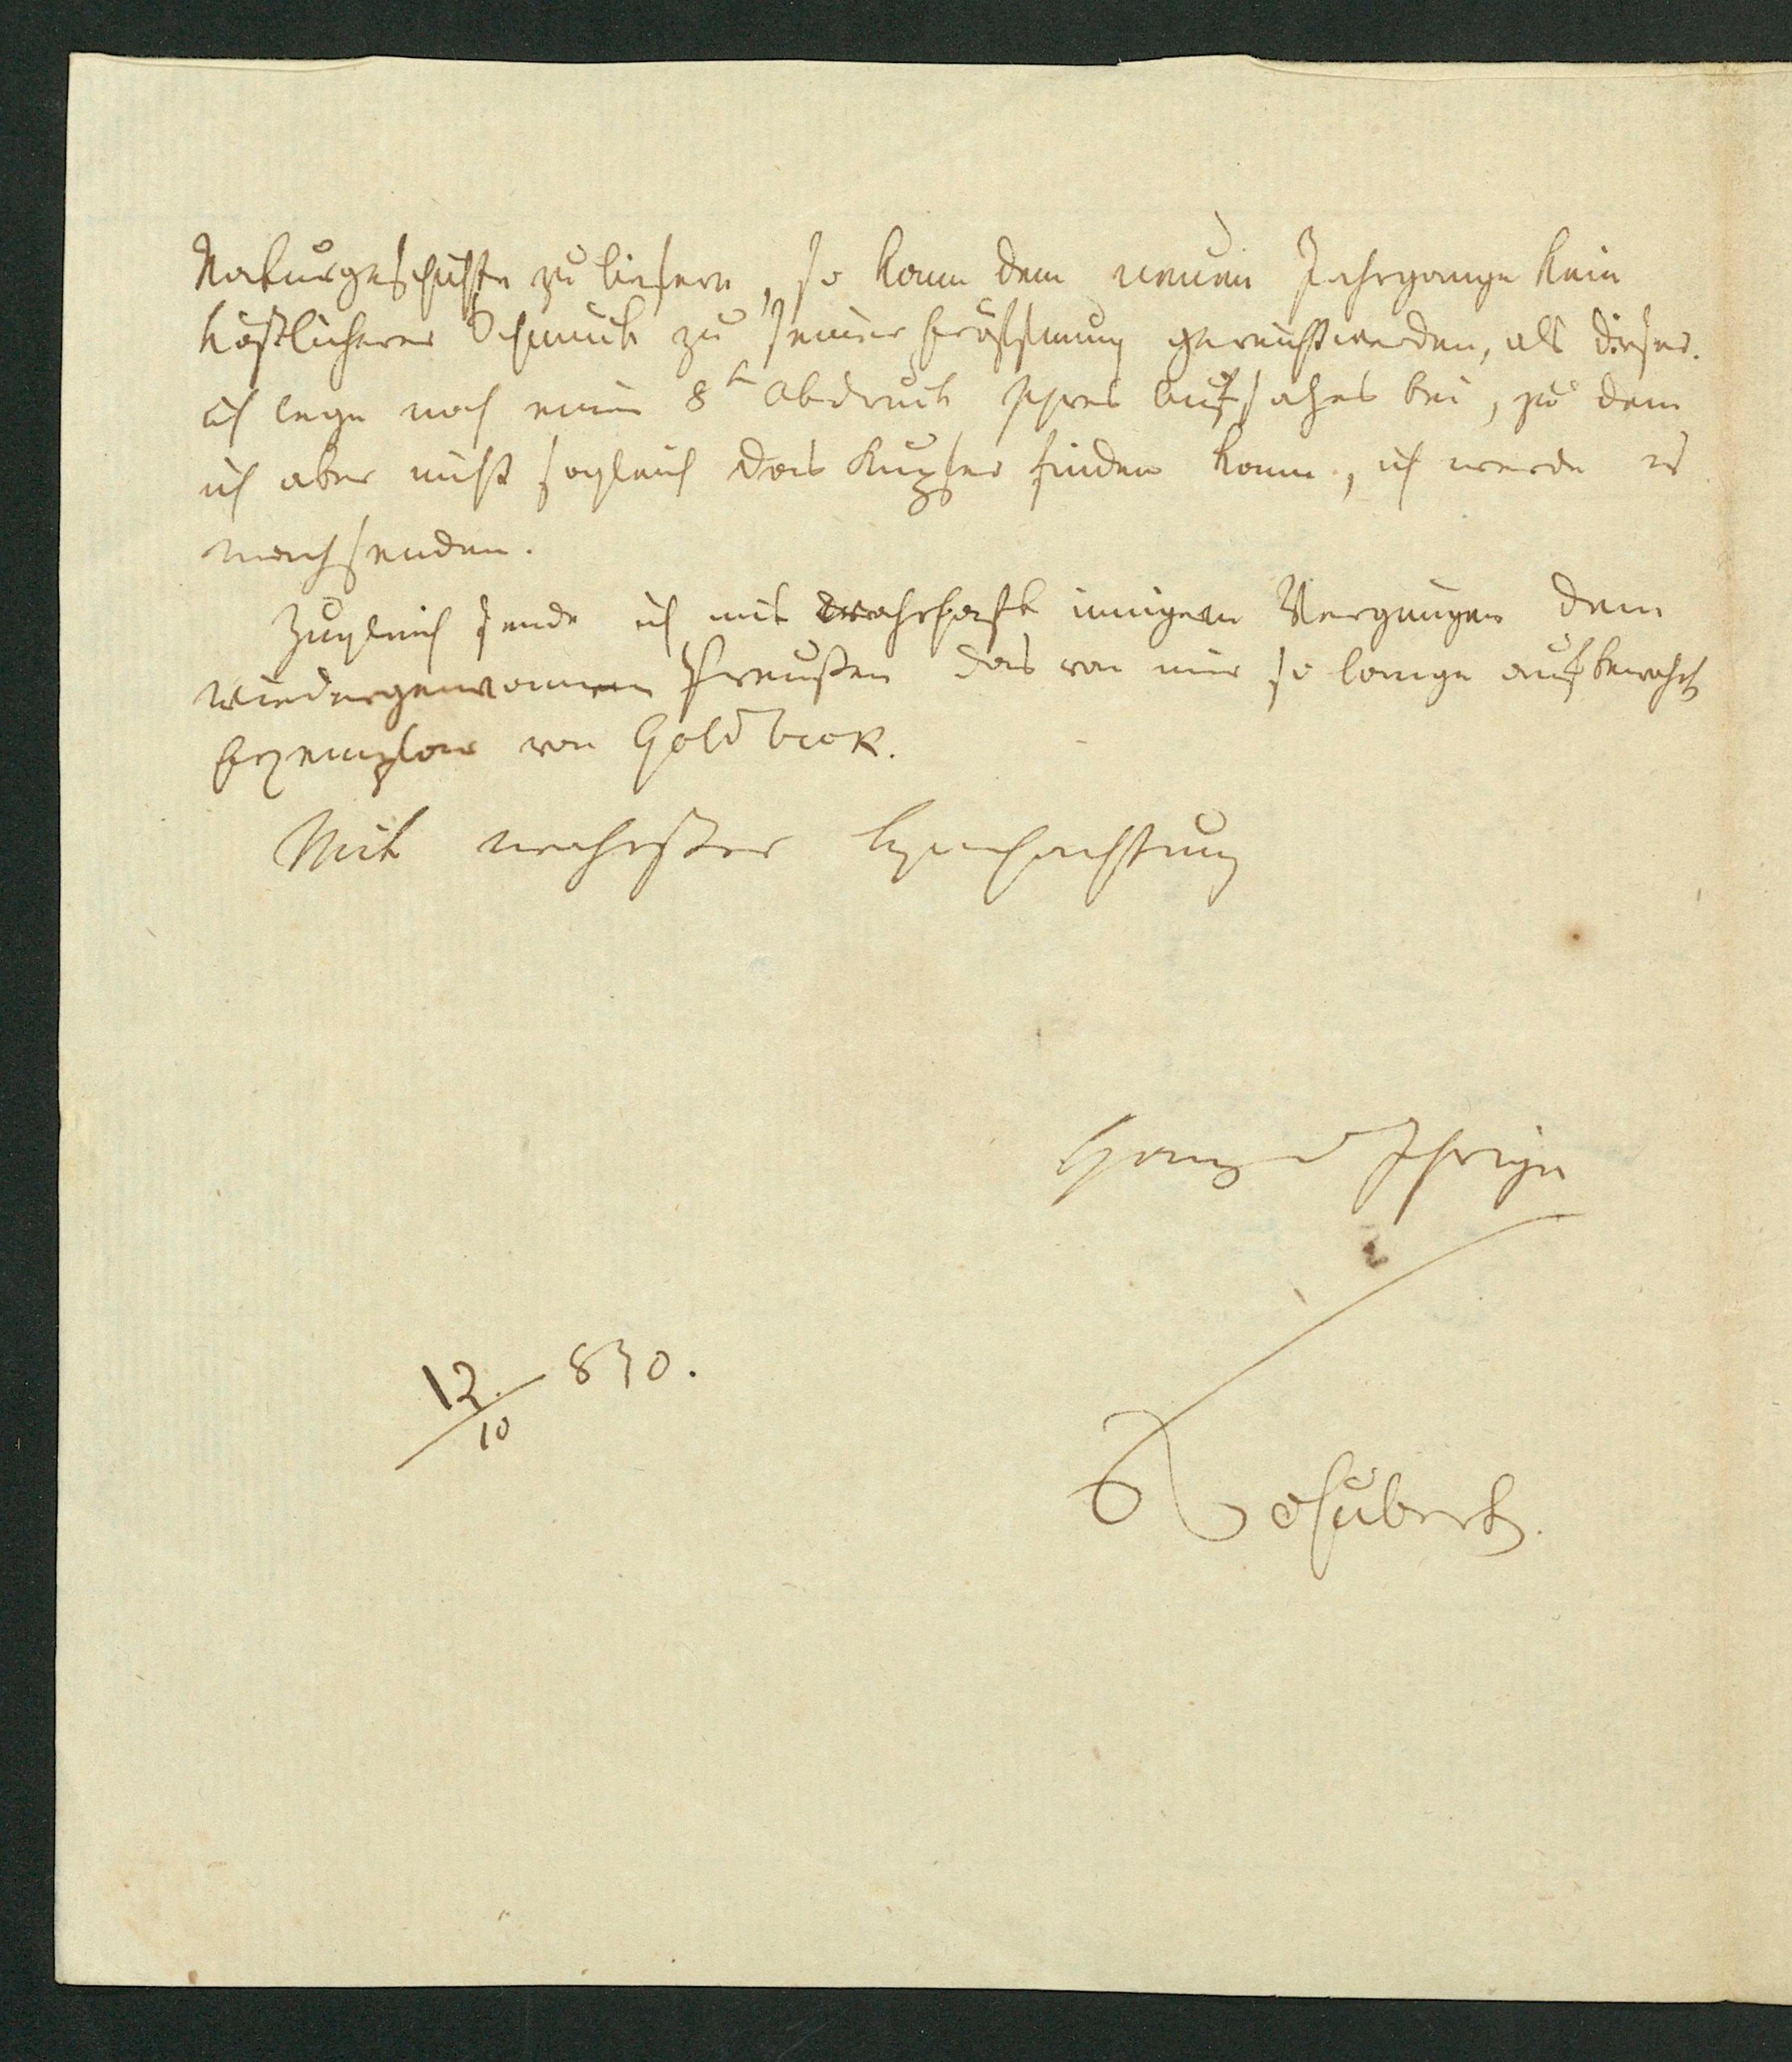 Naturgeschichte zu liefern, so kann dem neuen Jahrgange kein
köstlicherer Schmuck zu seiner Eröffnung gereicht werden, als dieser.
ich lege noch einen 8t Abdruck Ihres Aufsatzes bei, zu dem
ich aber nicht sogleich das Kupfer finden kann, ich werde es
nachsenden.
Zugleich sende ich mit wahrhaft innigem Vergnügen dem
wiedergewonnenen Preußen das von mir so lange aufbewahrte
Exemplar von Goldbeck.
Mit wahrster Hochachtung
Ganz d Ihrige
Schubert.
12/10 830.